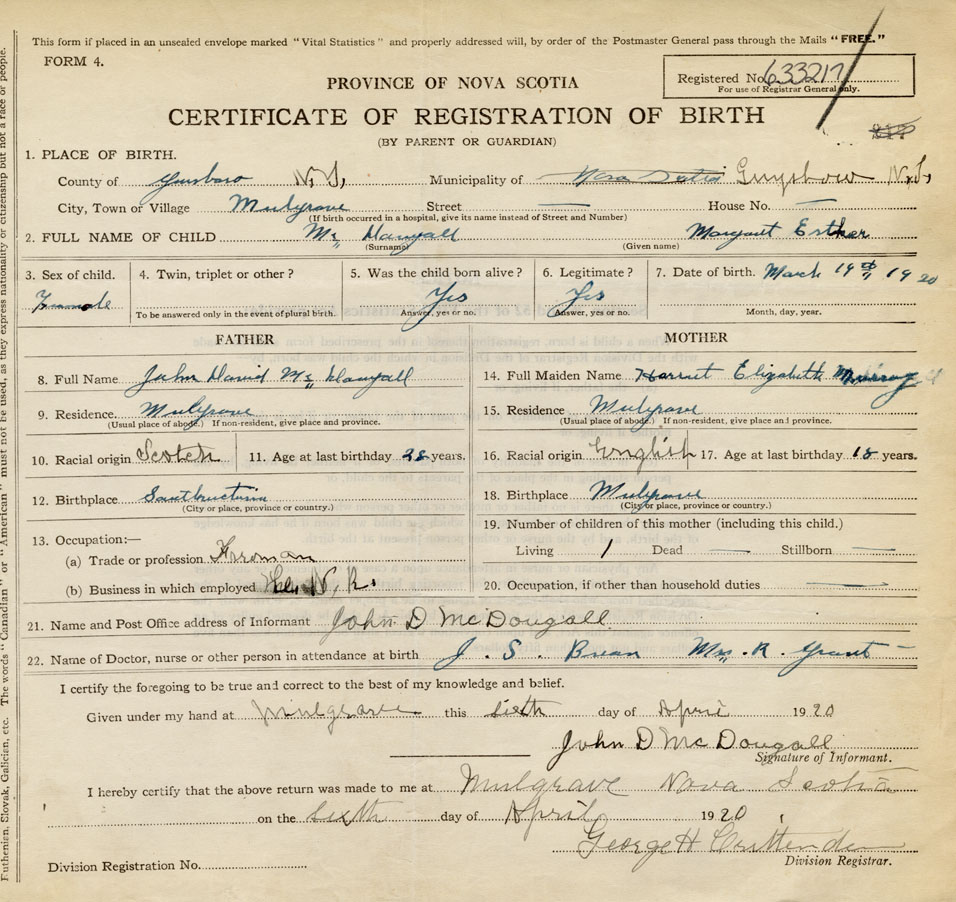 This form if placed in an unsealed envelope marked "Vital Statistics" and properly addressed will, by order of the Postmaster General pass through the Mails "FREE."
FORM 4.
Registered No. 633217
For use of Registrar General only.
PROVINCE OF NOVA SCOTIA
CERTIFICATE OF REGISTRATION OF BIRTH
(BY PARENT OR GUARDIAN)
1. PLACE OF BIRTH.
County of Guysboro N.S. Municipality of Nova Scotia N.S,
City, Town or Village Mulgrave Street — House No. —
(If birth occurred in a hospital, give its name instead of Street and Number)
2. FULL NAME OF CHILD Mc Dougall Margaret Esther
(Surname) (Given name)
3. Sex of child. 4. Twin, triplet or other? 5. Was the child born alive? 6. Legitimate? 7. Date of birth. March 19th 1920
Female Yes Yes
To be answered only in the event of plural birth. Answer, yes or no. Answer, yes or no. Month, day, year.
FATHER
8. Full Name John David Mc Dougall
9. Residence Mulgrave
(Usual place of abode.) If non-resident, give place and province.
10. Racial origin Scotch 11. Age at last birthday years.
12. Birthplace
(City or place, province or country.)
13. Occupation:—
(a) Trade or profession
(b) Business in which employed
MOTHER
14. Full Maiden Name Harriet Elizabeth
15. Residence Mulgrave
(Usual place of abode.) If non-resident, give place and province.
16. Racial origin English 17. Age at last birthday 18 years.
18. Birthplace Mulgrave
(City or place, province or country.)
19. Number of children of this mother (including this child.)
Living 1 Dead — Stillborn —
20. Occupation, if other than household duties —
21. Name and Post Office address of Informant John D McDougall
22. Name of Doctor, nurse or other person in attendance at birth J. S. Brean Mrs. R. Grant
I certify the foregoing to be true and correct to the best of my knowledge and belief.
Given under my hand at Mulgrave this sixth day of April 1920
John D McDougall
Signature of Informant.
I hereby certify that the above return was made to me at Mulgrave Nova Scotia
on the sixth day of April 1920
George H Cruttenden
Division Registrar.
Division Registration No.
Ruthenian, Slovak, Galician, etc. The words "Canadian" or "American" must not be used, as they express nationality or citizenship but not a race or people.